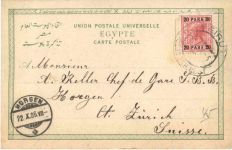 UNION POSTALE UNIVERSELLE
EGYPTE
CARTE POSTALE
20 20
20 20
A Monsieur
A. Keller Chef de Gare S.B.B.
Horgen
Ct. Zürich
Suisse.
HORGEN
22.X.06.VII-